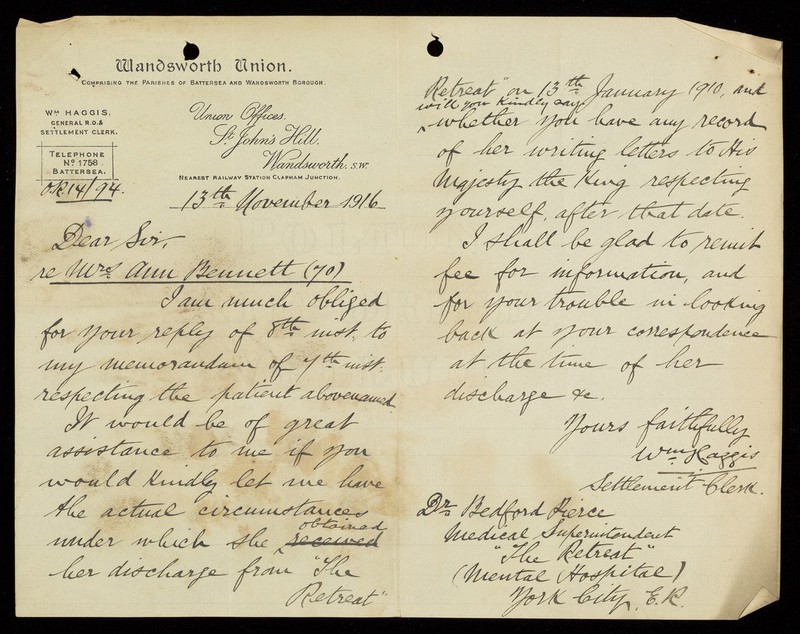 Wandsworth Union.
Comprising the Parishes of Battersea and Wandsworth Borough.
Wm HAGGIS,
GENERAL R.O. &
SETTLEMENT CLERK.
TELEPHONE
No 1758
BATTERSEA.
Union Offices,
St. John's Hill,
Wandsworth. S.W.
Nearest Railway Station Clapham Junction.
14/94.
13th November 1916
Dear Sir,
re Mrs Ann Bennett (70)
I am much obliged
for your reply of 8th inst. to
my memorandum of 7th inst.
respecting the patient abovenamed
It would be of great
assistance to me if you
would kindly let me have
the actual circumstances
obtained
under which she received
her discharge from "The
Retreat"
Retreat" on 13th January 1910, and
will you kindly say
whether you have any record
of her writing letters to His
Majesty the King respecting
yourself, after that date.
I shall be glad to remit
fee for information, and
for your trouble in looking
back at your correspondence
at the time of her
discharge &c.
Yours faithfully
Wm Haggis
Settlement Clerk.
Dr. Bedford Pierce
Medical Superintendent
"The Retreat"
(Mental Hospital)
York City, E.R.